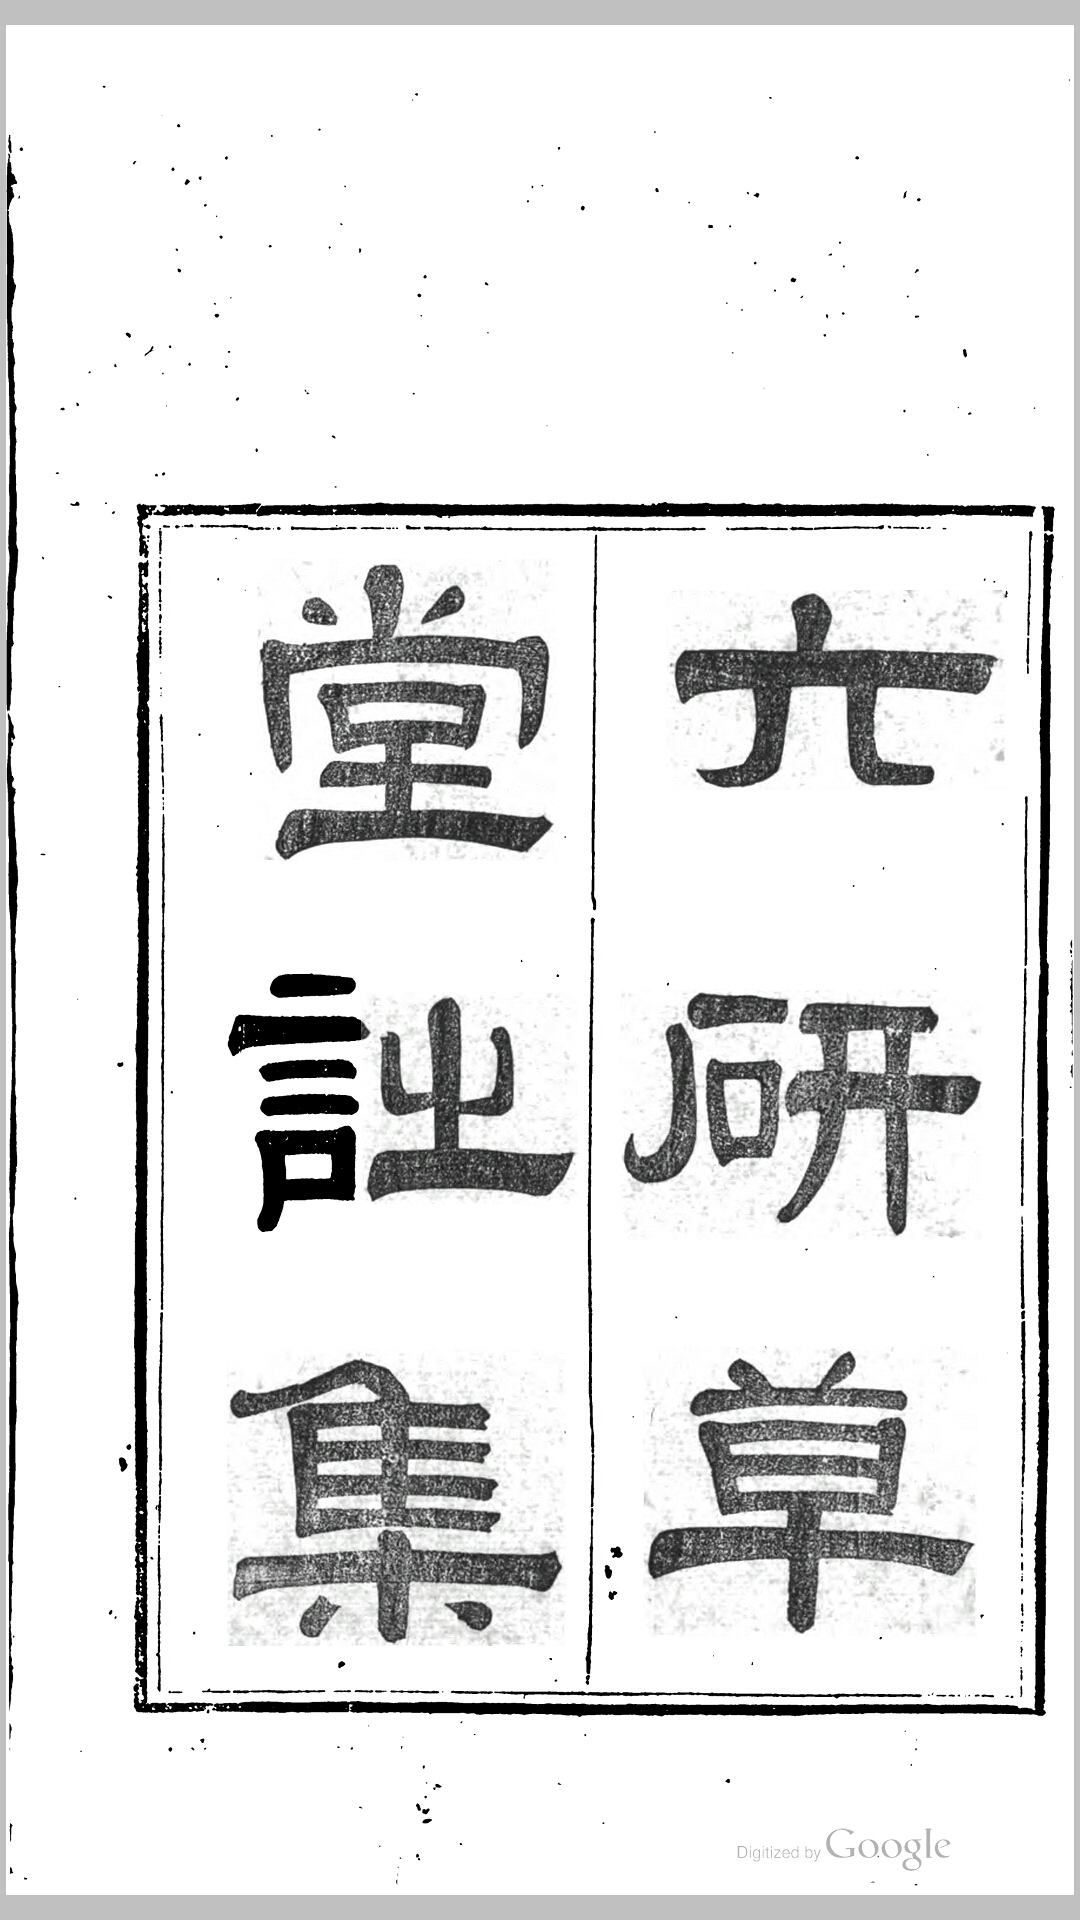 六研草
堂詘集
Digitized by Google